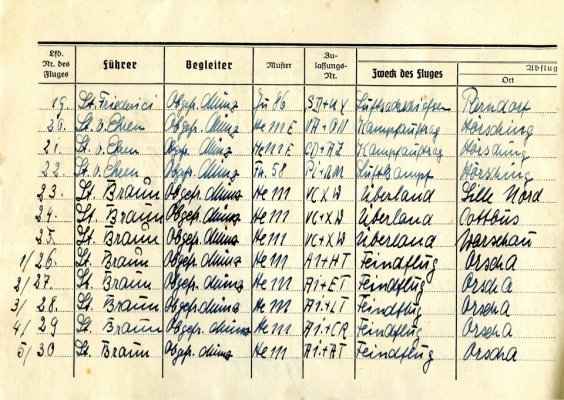 Lfd. Nr. des Fluges Führer Begleiter Muster Zulassungs-Nr. Zweck des Fluges Abflug Ort
19. St. Friederici Obgefr. Münz Ju 86
20. St. v. Ehren Obgefr. Münz He 111 E VA+ Kampfauftrag Hörsching
21. St. v. Ehren Obgefr. Münz He 111 E Kampfauftrag Hörsching
22. St. v. Ehren Obgefr. Münz Fh. 58 Luftkampf Hörsching
23. St. Braun Obgefr. Münz He 111 VC+XW Überland Lille Nord
24. St. Braun Obgefr. Münz He 111 VC+XW Überland Cottbus
25. St. Braun Obgefr. Münz He 111 VC+XW Überland Warschau
1/26. St. Braun Obgefr. Münz He 111 A1+HT Feindflug Orscha
2/27. St. Braun Obgefr. Münz He 111 A1+ET Feindflug Orscha
3/28. St. Braun Obgefr. Münz He 111 A1+LT Feindflug Orscha
4/29 St. Braun Obgefr. Münz He 111 A1+CR Feindflug Orscha
5/30 St. Braun Obgefr. Münz He 111 A1+AT Feindflug Orscha